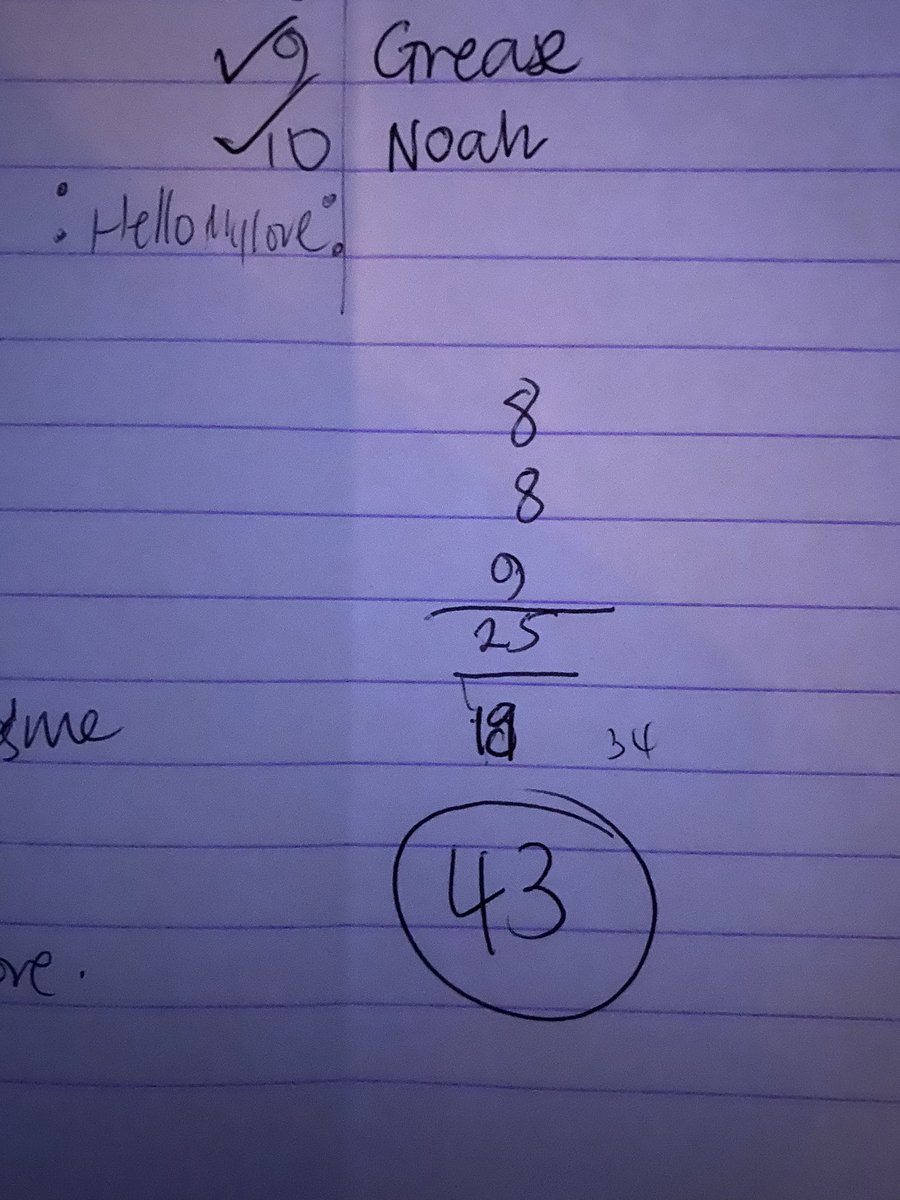 ✓9 Grease
✓10 Noah
: Hello My love :
8
8
9
25
18 34
43